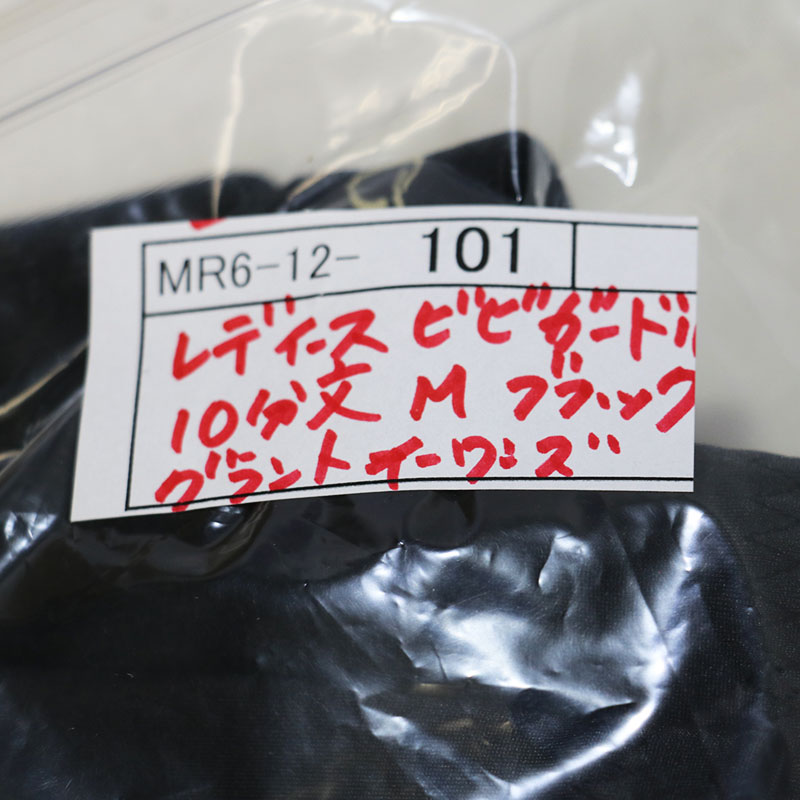 MR6-12- 101
レディース ビビガードル
10分丈 M ブラック
グラントイーワンズ